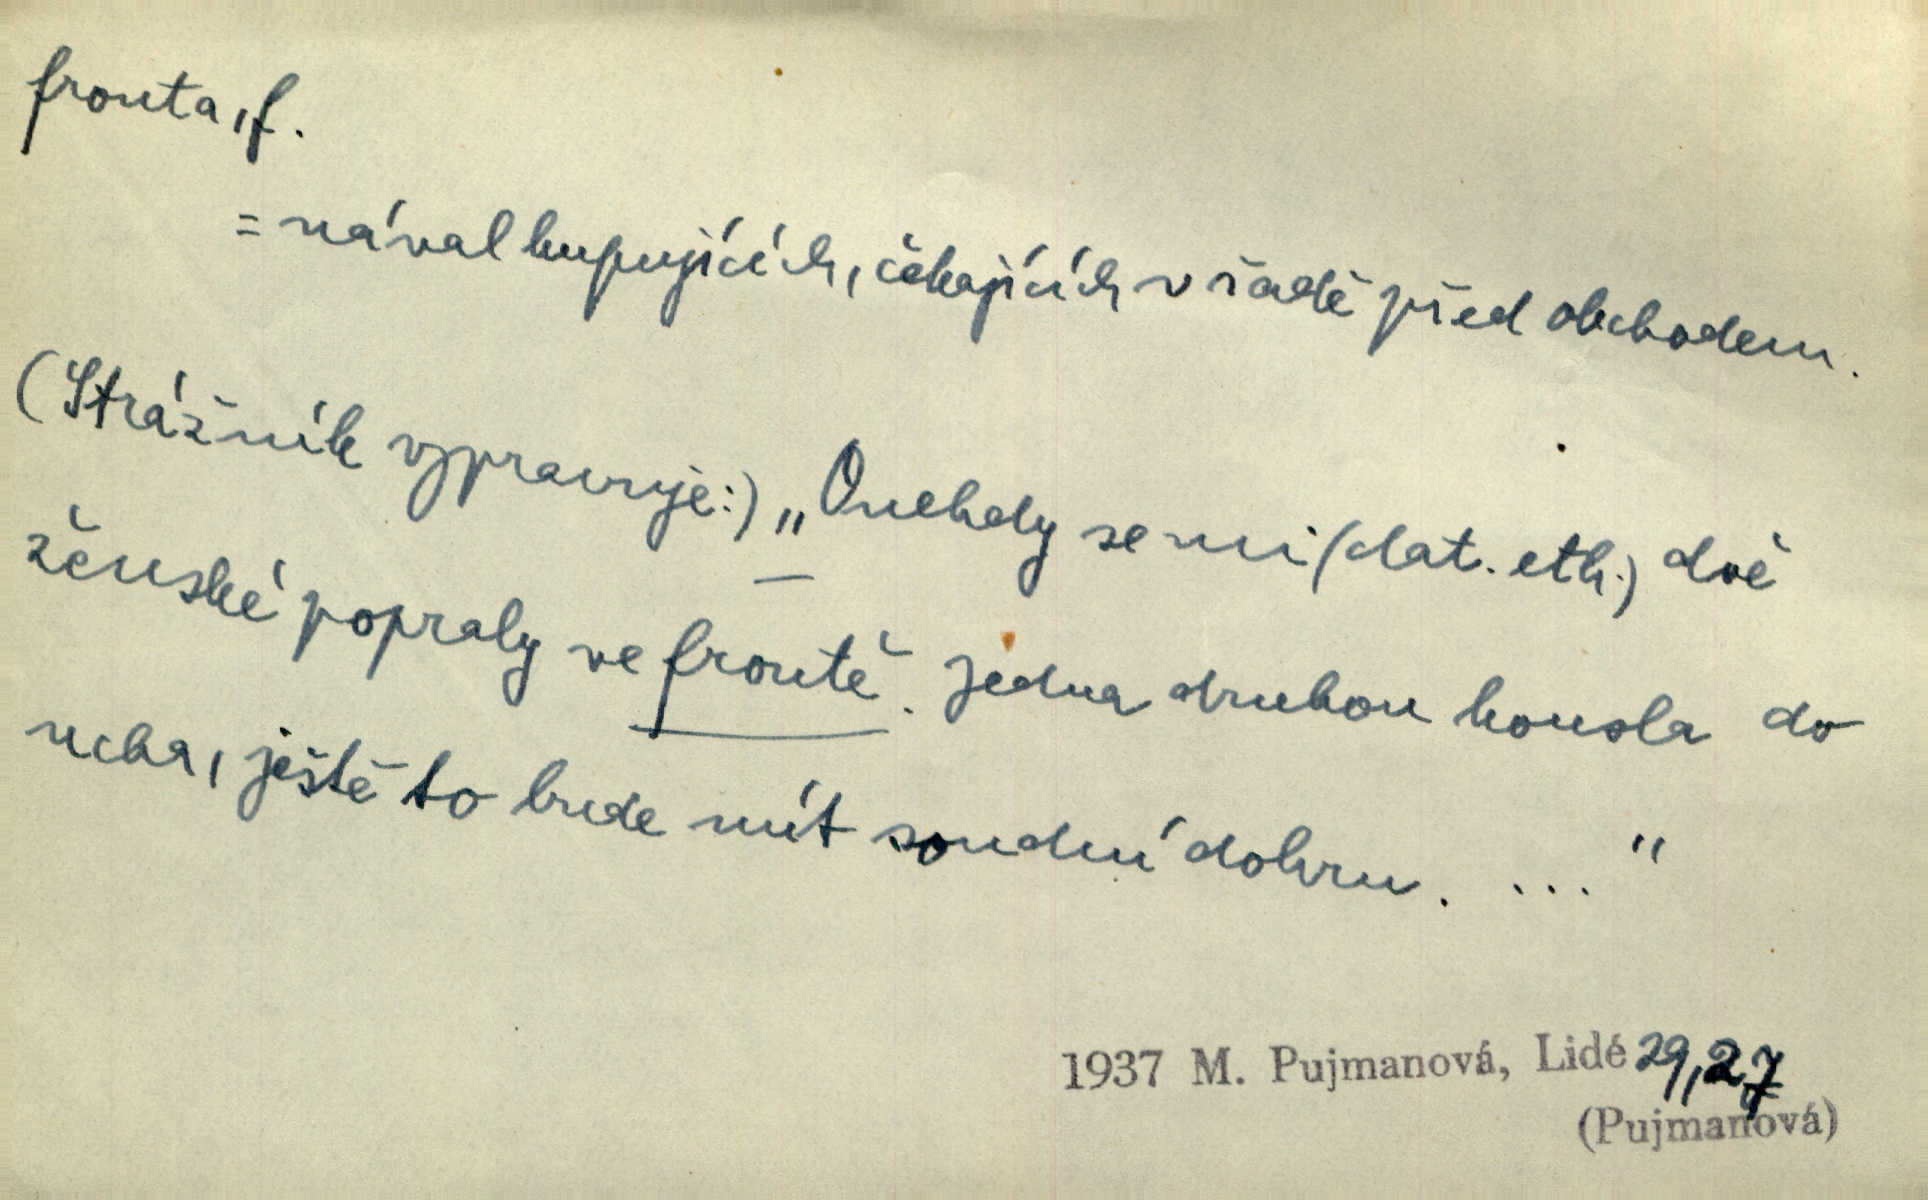 fronta, f.
= nával kupujících, čekajících v řadě před obchodem.
(Strážník vypravuje:) „Onehdy se mi (dat. eth.) dvě
ženské popraly ve frontě. Jedna druhou kousla do
ucha, ještě to bude mít soudní dohru. ..."
1937 M. Pujmanová, Lidé 29,27
(Pujmanová)